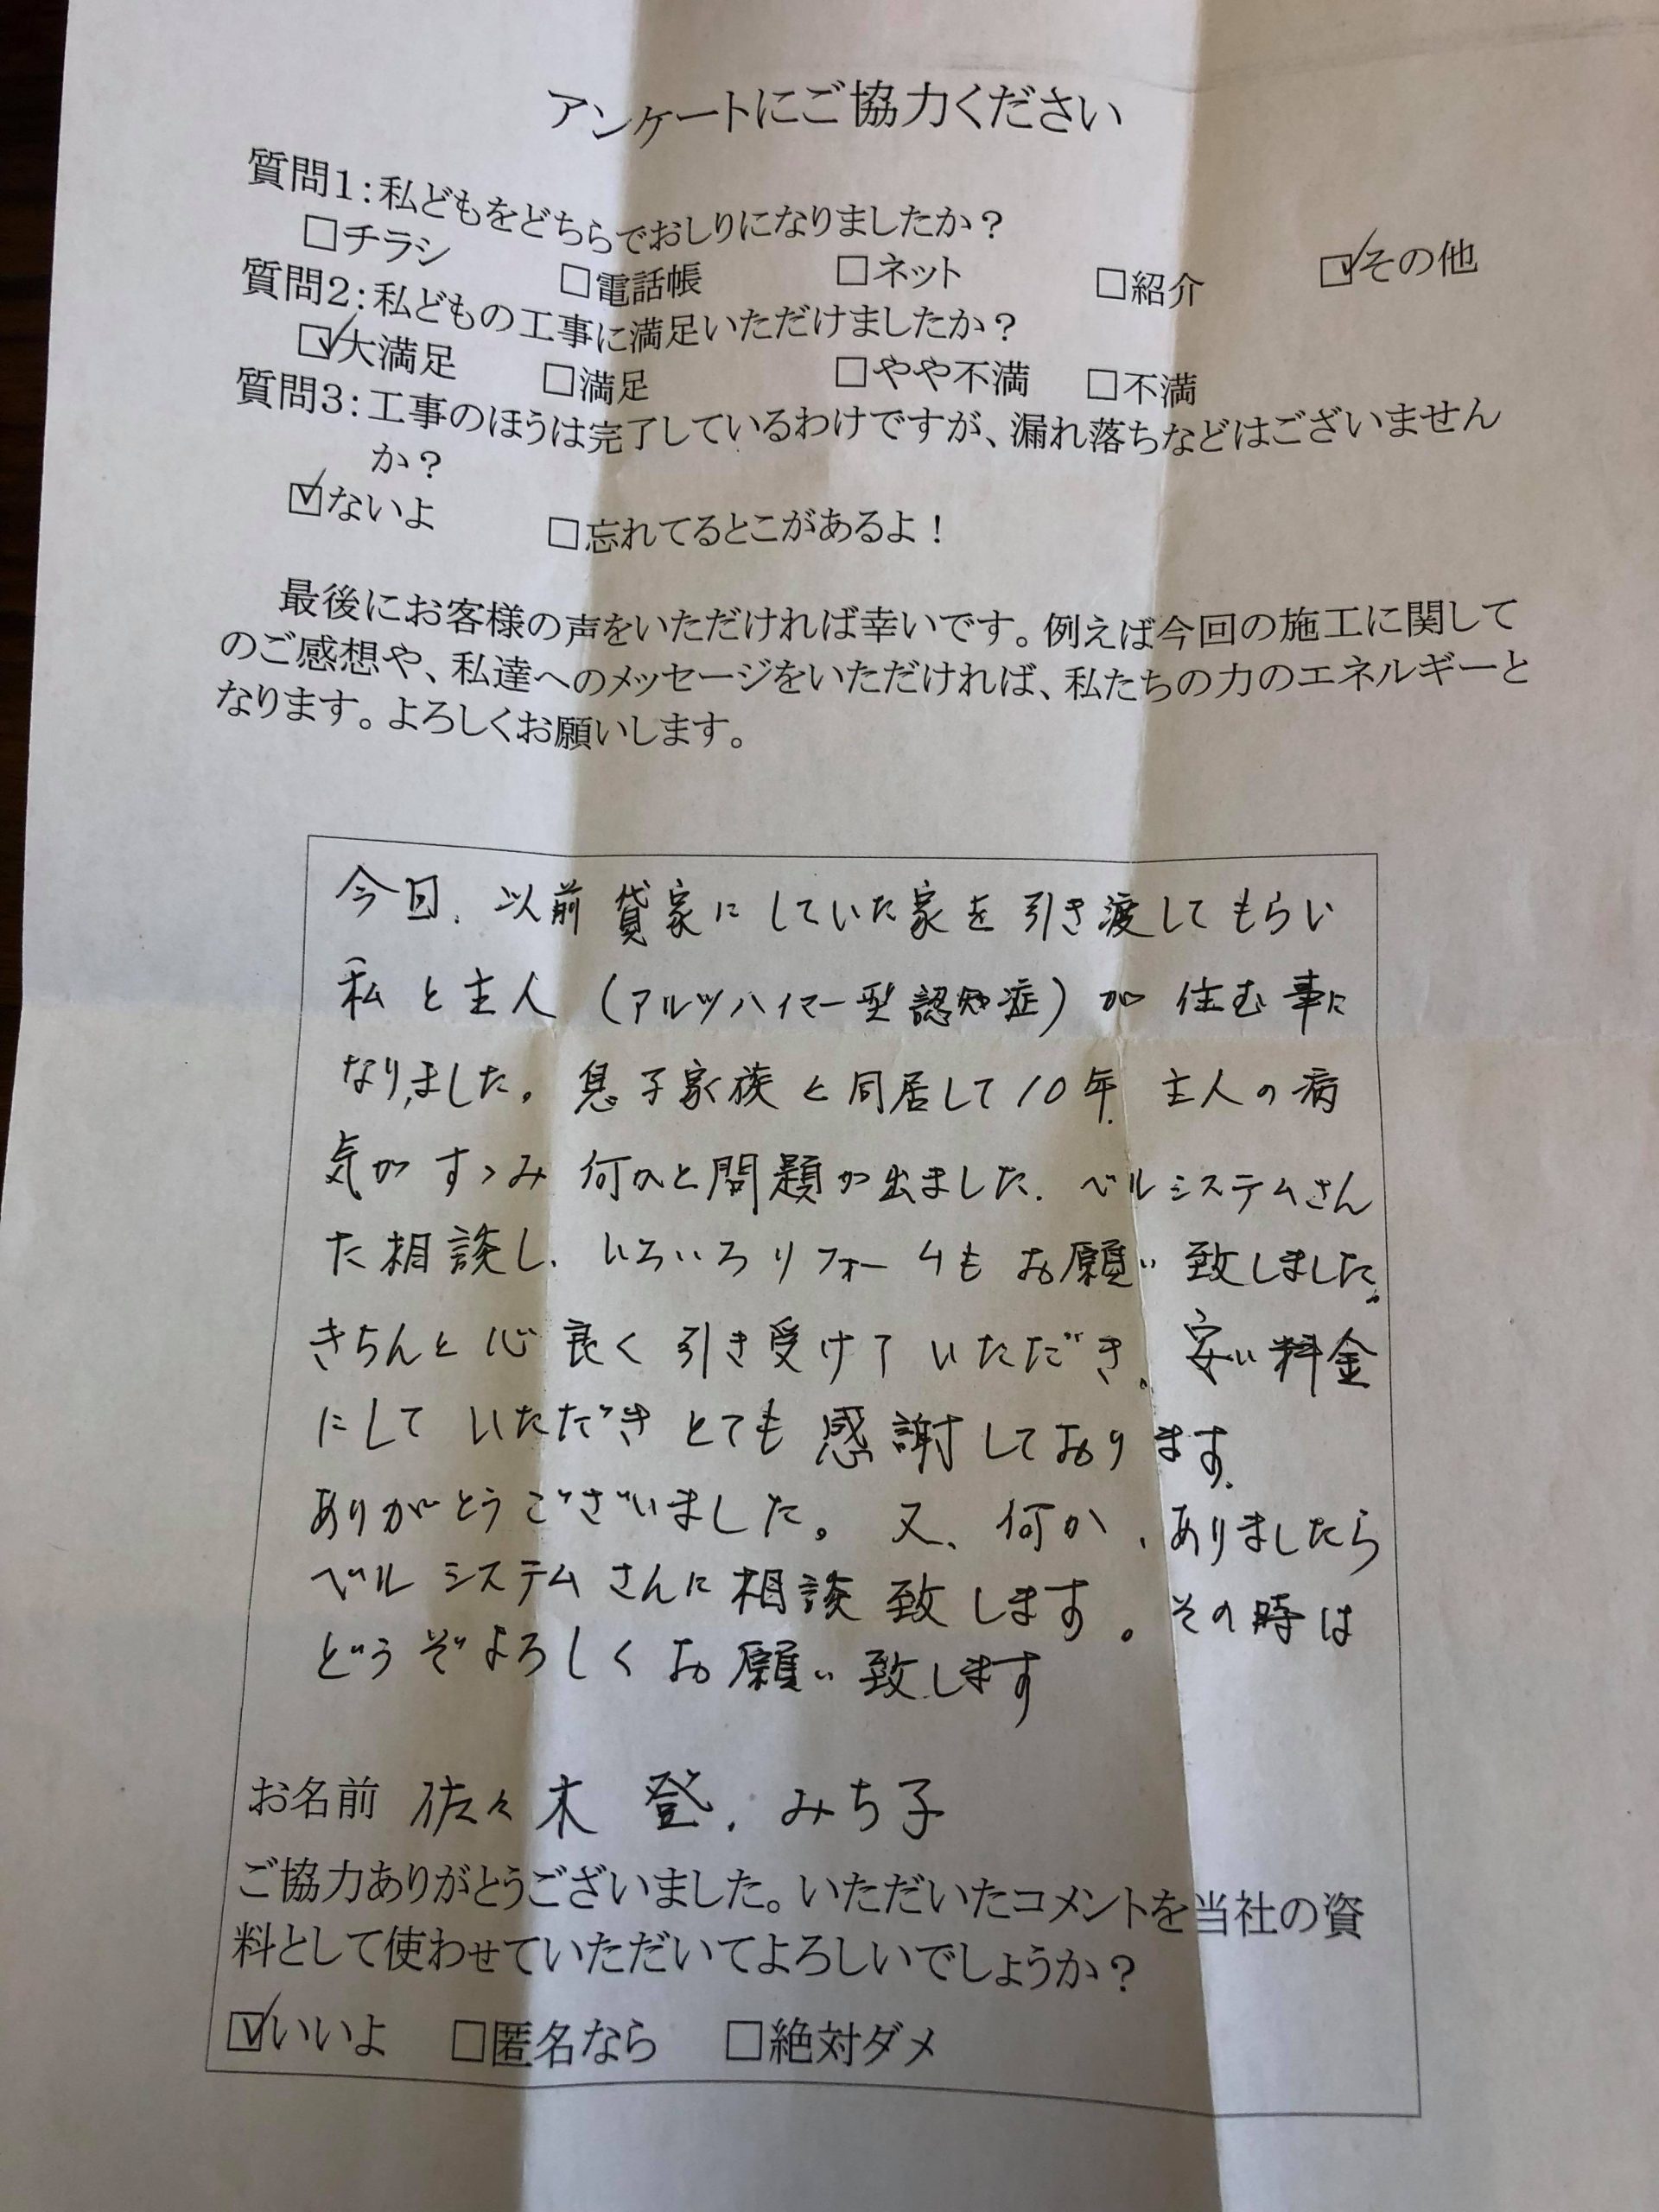 アンケートにご協力ください
質問1：私どもをどちらでおしりになりましたか？
□チラシ □電話帳 □ネット □紹介 ☑その他
質問2：私どもの工事に満足いただけましたか？
☑大満足 □満足 □やや不満 □不満
質問3：工事のほうは完了しているわけですが、漏れ落ちなどはございません
か？
☑ないよ □忘れてるとこがあるよ！
最後にお客様の声をいただければ幸いです。例えば今回の施工に関して
のご感想や、私達へのメッセージをいただければ、私たちの力のエネルギーと
なります。よろしくお願いします。
今回、以前貸家にしていた家を引き渡してもらい
私と主人（アルツハイマー型認知症）が住む事に
なりました。息子家族と同居して10年、主人の病
気がすゝみ何かと問題が出ました。ベルシステムさん
た相談し、いろいろリフォームもお願い致しました。
きちんと心良く引き受けていただき、安い料金
にしていただきとても感謝しております。
ありがとうございました。又、何か、ありましたら
ベルシステムさんに相談致します。その時は
どうぞよろしくお願い致します
お名前 佐々木 登、みち子
ご協力ありがとうございました。いただいたコメントを当社の資
料として使わせていただいてよろしいでしょうか？
☑いいよ □匿名なら □絶対ダメ